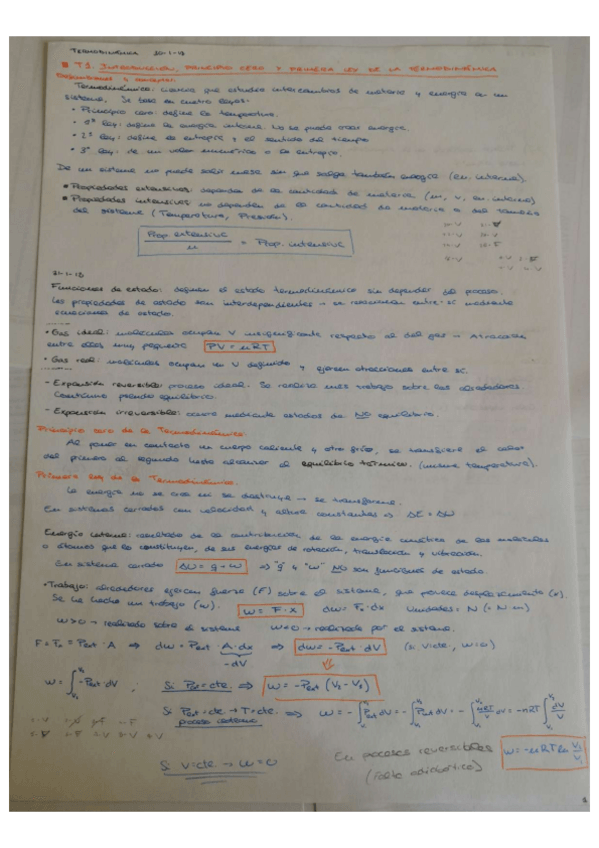 TERMODINÁMICA 30-1-18
T1. INTRODUCCIÓN, PRINCIPIO CERO Y PRIMERA LEY DE LA TERMODINÁMICA
Definiciones y conceptos:
Termodinámica: ciencia que estudia intercambios de materia y energía en un
sistema. Se basa en cuatro leyes:
• Principio cero: define la temperatura.
• 1ª ley: define la energía interna. No se puede crear energía.
• 2ª ley: define la entropía y el sentido del tiempo
• 3ª ley: da un valor numérico a la entropía.
De un sistema no puede salir masa sin que salga también energía (en. interna).
• Propiedades extensivas: dependen de la cantidad de materia (m, V, en. interna)
• Propiedades intensivas: no dependen de la cantidad de materia o del tamaño
del sistema (Temperatura, Presión).
Prop. extensiva / n = Prop. intensiva
31-1-18
Funciones de estado: definen el estado termodinámico sin depender del proceso.
Las propiedades de estado son interdependientes → se relacionan entre sí mediante
ecuaciones de estado.
• Gas ideal: moléculas ocupan V insignificante respecto al del gas → Atracción
entre ellas muy pequeña PV = nRT
• Gas real: moléculas ocupan un V definido y ejercen atracciones entre sí.
- Expansión reversible: proceso ideal. Se realiza más trabajo sobre los alrededores.
Continuo pseudo equilibrio.
- Expansión irreversible: ocurre mediante estados de NO equilibrio.
Principio cero de la Termodinámica:
Al poner en contacto un cuerpo caliente y otro frío, se transfiere el calor
del primero al segundo hasta alcanzar el equilibrio térmico. (misma temperatura).
Primera ley de la Termodinámica.
La energía no se crea ni se destruye → se transforma.
En sistemas cerrados con velocidad y altura constantes ⇒ ΔE = ΔU
Energía interna: resultado de la contribución de la energía cinética de las moléculas
o átomos que lo constituyen, de sus energías de rotación, translación y vibración.
En sistema cerrado ΔU = q + w ⇒ "q" y "w" NO son funciones de estado.
• Trabajo: alrededores ejercen fuerza (F) sobre el sistema, que padece desplazamiento (x).
Se ha hecho un trabajo (w). w = F · x dw = Fx · dx Unidades: N (= N·m)
w>0 → realizado sobre el sistema w<0 → realizado por el sistema.
F = Fx = Pext · A ⇒ dw = Pext · A · dx ⇒ dw = -Pext · dV (si V=cte., w=0)
-dV
w = ∫ -Pext · dV ; Si Pe = cte. ⇒ w = -Pext (V2 - V1)
Si Pe = cte. → T = cte. ⇒ w = -∫ Pext dV = -∫ Pgas dV = -∫ nRT/V dV = -nRT ∫ dV/V
Si V=cte. → w=0
En procesos reversibles w = -nRT ln V2/V1
(salvo adiabático)